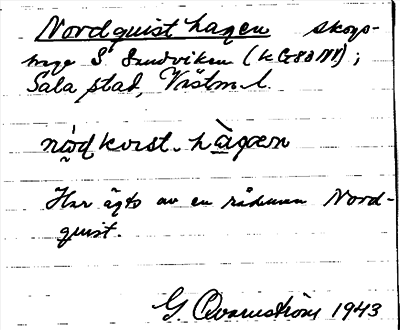 Nordquisthagen skogs-
hage S. Sandviken (k G8d NV);
Sala stad, Västm. l.
nωd kvist. hàgæn
Har ägts av en rådman Nord-
quist.
G. Qvarnström 1943